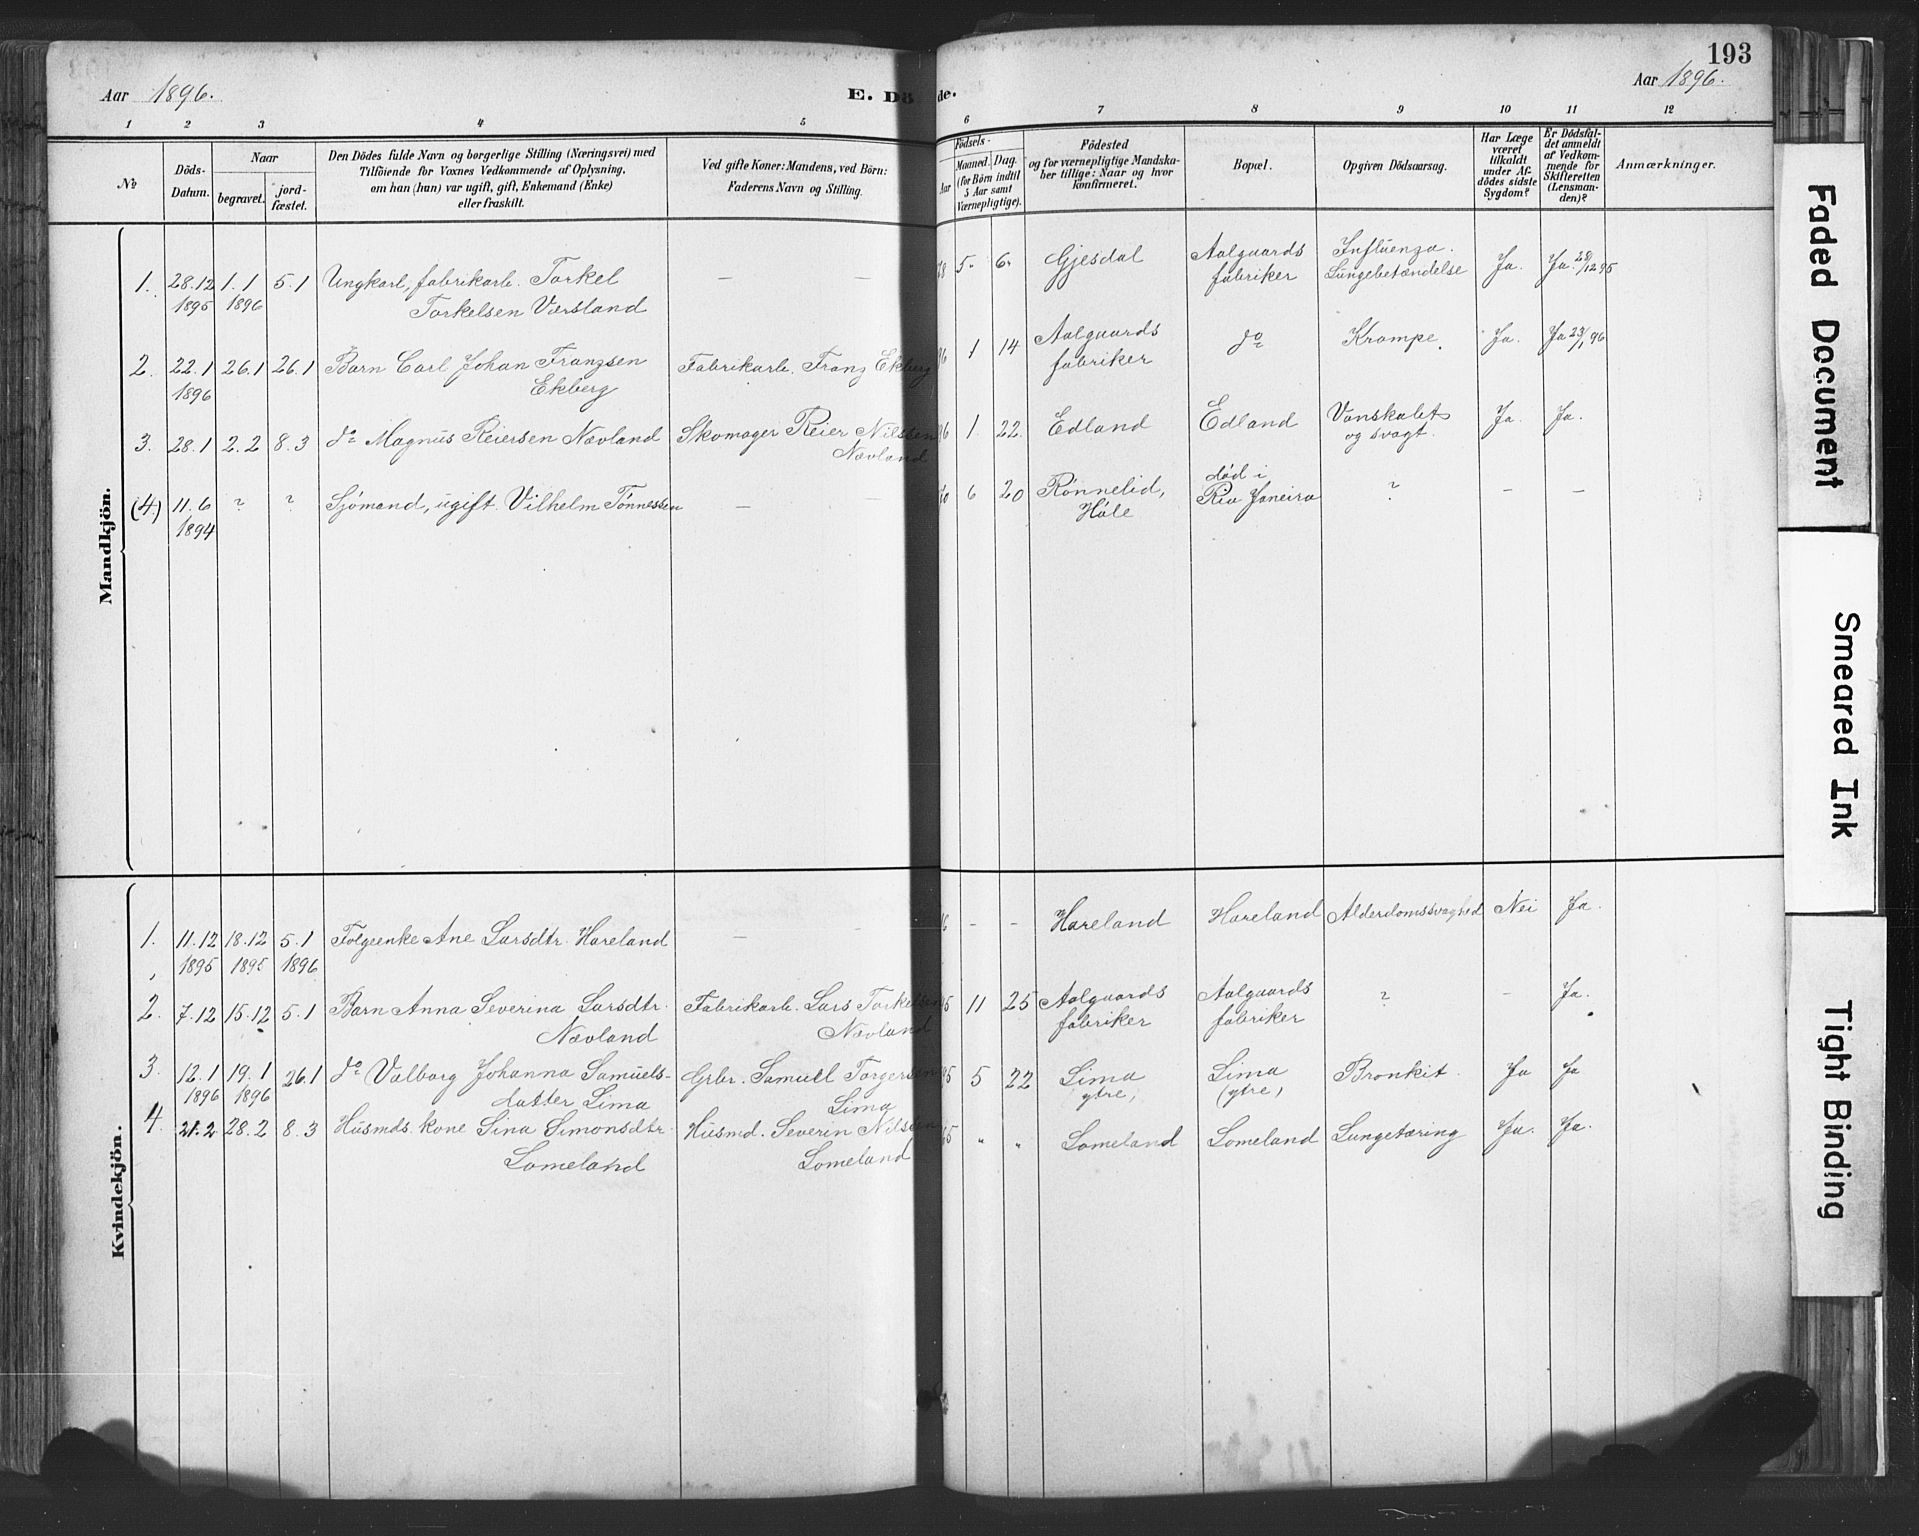 193
Aar 1896.
E. Dö
de.
Aar 1896.
1 2 3 4 5 6 7 8 9 10 11 12
No
Döds-
Datum.
Naar
begravet.
jord-
fæstet.
Den Dödes fulde Navn og borgerlige Stilling (Næringsvei) med
Tilföiende for Voxnes Vedkommende af Oplysning,
om han (hun) var ugift, gift, Enkemand (Enke)
eller fraskilt.
Ved gifte Koner: Mandens, ved Börn:
Faderens Navn og Stilling.
Födsels-
Aar
Maaned. Dag.
(for Börn indtil
5 Aar samt
Værnepligtige).
Födested
og for værnepligtige Mandska-
ber tillige: Naar og hvor
konfirmeret.
Bopæl.
Opgiven Dödsaarsag.
Har Læge
været
tilkaldt
under Af-
dödes sidste
Sygdom?
Er Dödsfal-
det anmeldt
af Vedkom-
mende for
Skifteretten
(Lensman-
den)?
Anmærkninger.
Mandkjön.
1. 28.12 1.1 5.1 Ungkarl, fabrikarb. Torkel — — 5. 6. Gjesdal Aalgaards Influenza. Ja. Ja. 28/12 95
1895 1896 Torkelsen Værsland fabriker Lungebetændelse
2. 22.1 26.1 26.1 Barn Carl Johan Franzsen Fabrikarb. Franz Ekberg 96 1 14 Aalgaards do Krampe. Ja. Ja 23/1 96
1896 Ekberg fabriker
3. 28.1 2.2 8.3 do Magnus Reiersen Nævland Skomager Reier Nilssen 96 1. 22. Edland Edland Vanskabet Ja. Ja.
Nævland og svagt.
(4.) 11.6 ? ? Sjömand, ugift. Vilhelm Tönnessen — — 6 20 Rönnelid, död i ? — —
1894 Höle Rio Janeiro
Kvindekjön.
1. 11.12 18.12 5.1 Folgeenke Ane Larsdtr. Hareland — — - - Hareland Hareland Alderdomssvaghed Nei Ja.
1895 1895 1896
2. 7.12 15.12 5.1 Barn Anna Severina Larsdtr. Fabrikarb. Lars Torkelsen 95 11 25 Aalgaards Aalgaards ? - Ja.
Nævland Nævland fabriker fabriker
3. 12.1 19.1 26.1 do Valborg Johanna Samuels- Grbr. Samuel Torgersen 95 5 22 Lima Lima Bronkit. Ja Ja
1896 1896 datter Lima Lima ytre, (ytre,
4. 21.2 28.2 8.3 Husmds kone Sina Simonsdtr. Husmd. Severin Nilssen " " Lomeland Lomeland Lungetæring Ja. Ja.
Lomeland Lomeland
Faded Document
Smeared Ink
Tight Binding